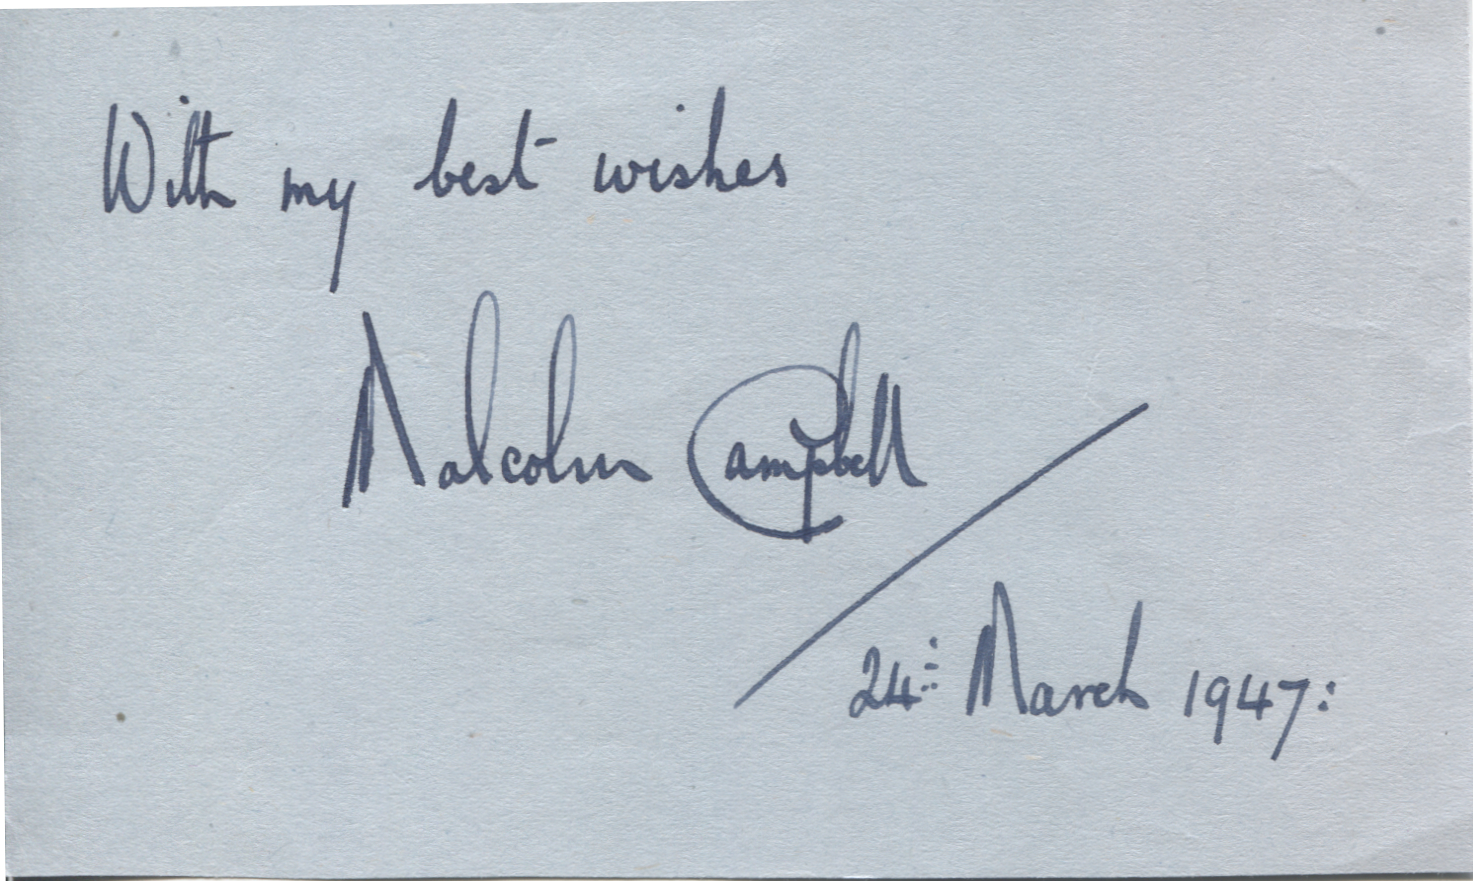 With my best wishes
Malcolm Campbell
24: March 1947: